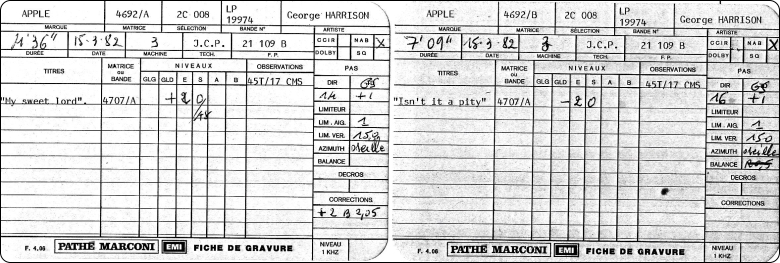 APPLE 4692/A 2C 008 LP 19974 George HARRISON
MARQUE SÉLECTION BANDE N° ARTISTE
4'36" 15-3-82 3 J.C.P. 21 109 B CCIR NAB X
DURÉE DATE MACHINE TECH. F. P. DOLBY SG
TITRES MATRICE OU BANDE NIVEAUX OBSERVATIONS PAS
GLG GLD E S A B 45T/17 CMS DIR
"My sweet lord". 4707/A +2 0 14 +1
LIMITEUR
LIM. AIG. 1
LIM. VER. 150
AZIMUTH oreille
BALANCE
DECROS
CORRECTIONS
+2 B 2,05
F. 4.06 PATHÉ MARCONI EMI FICHE DE GRAVURE NIVEAU 1 KHZ
APPLE 4692/B 2C 008 LP 19974 George HARRISON
MARQUE SÉLECTION BANDE N° ARTISTE
7'09" 15-3-82 3 J.C.P. 21 109 B CCIR NAB X
DURÉE DATE MACHINE TECH. F. P. DOLBY SG
TITRES MATRICE OU BANDE NIVEAUX OBSERVATIONS PAS
GLG GLD E S A B 45T/17 CMS DIR
"Isn't it a pity" 4707/A -2 0 16 +1
LIMITEUR
LIM. AIG. 1
LIM. VER. 150
AZIMUTH oreille
BALANCE
DECROS
CORRECTIONS
F. 4.06 PATHÉ MARCONI EMI FICHE DE GRAVURE NIVEAU 1 KHZ